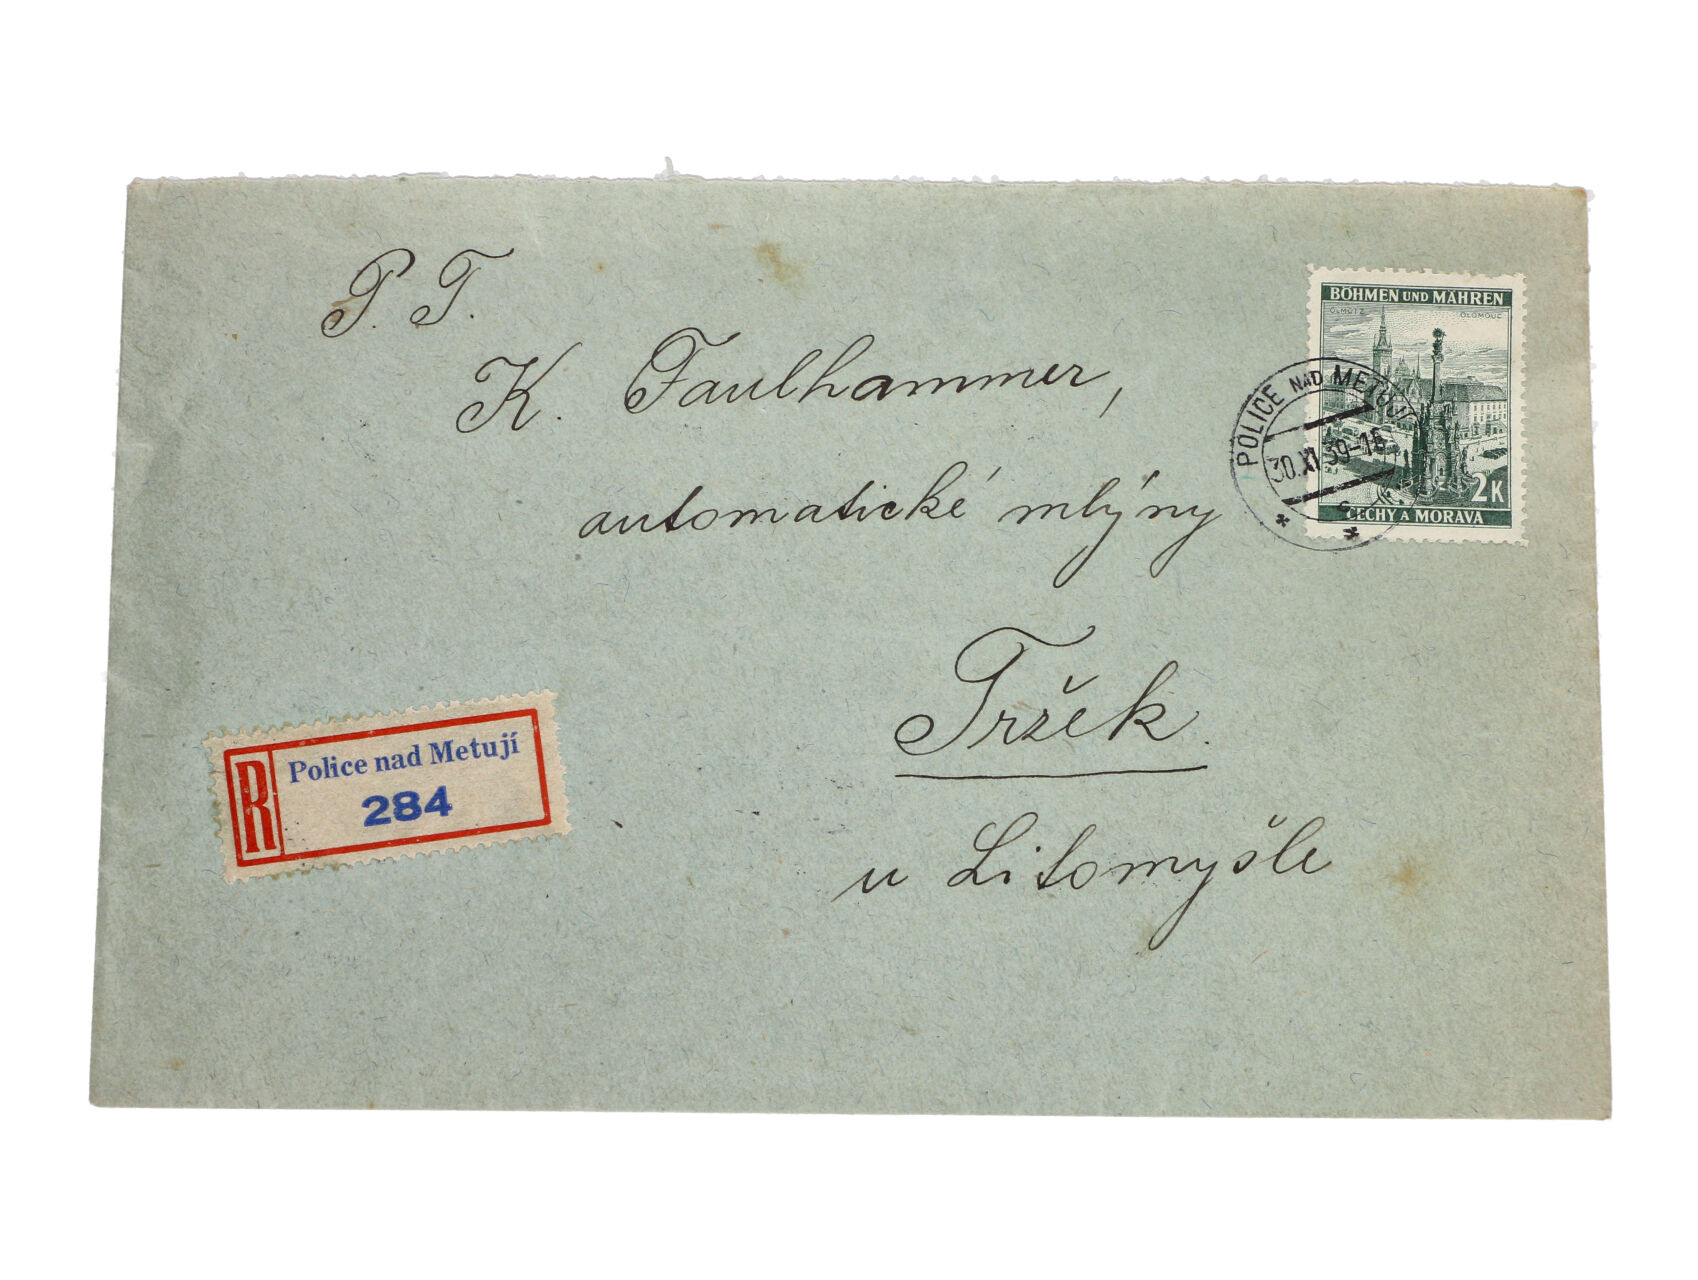 P. T.
K. Faulhammer,
automatické mlýny
Tržek.
u Litomyšle
BÖHMEN UND MÄHREN
OLMÜTZ OLOMOUC
2K
ČECHY A MORAVA
POLICE NAD METUJÍ
30.XI.39-16
R
Police nad Metují
284